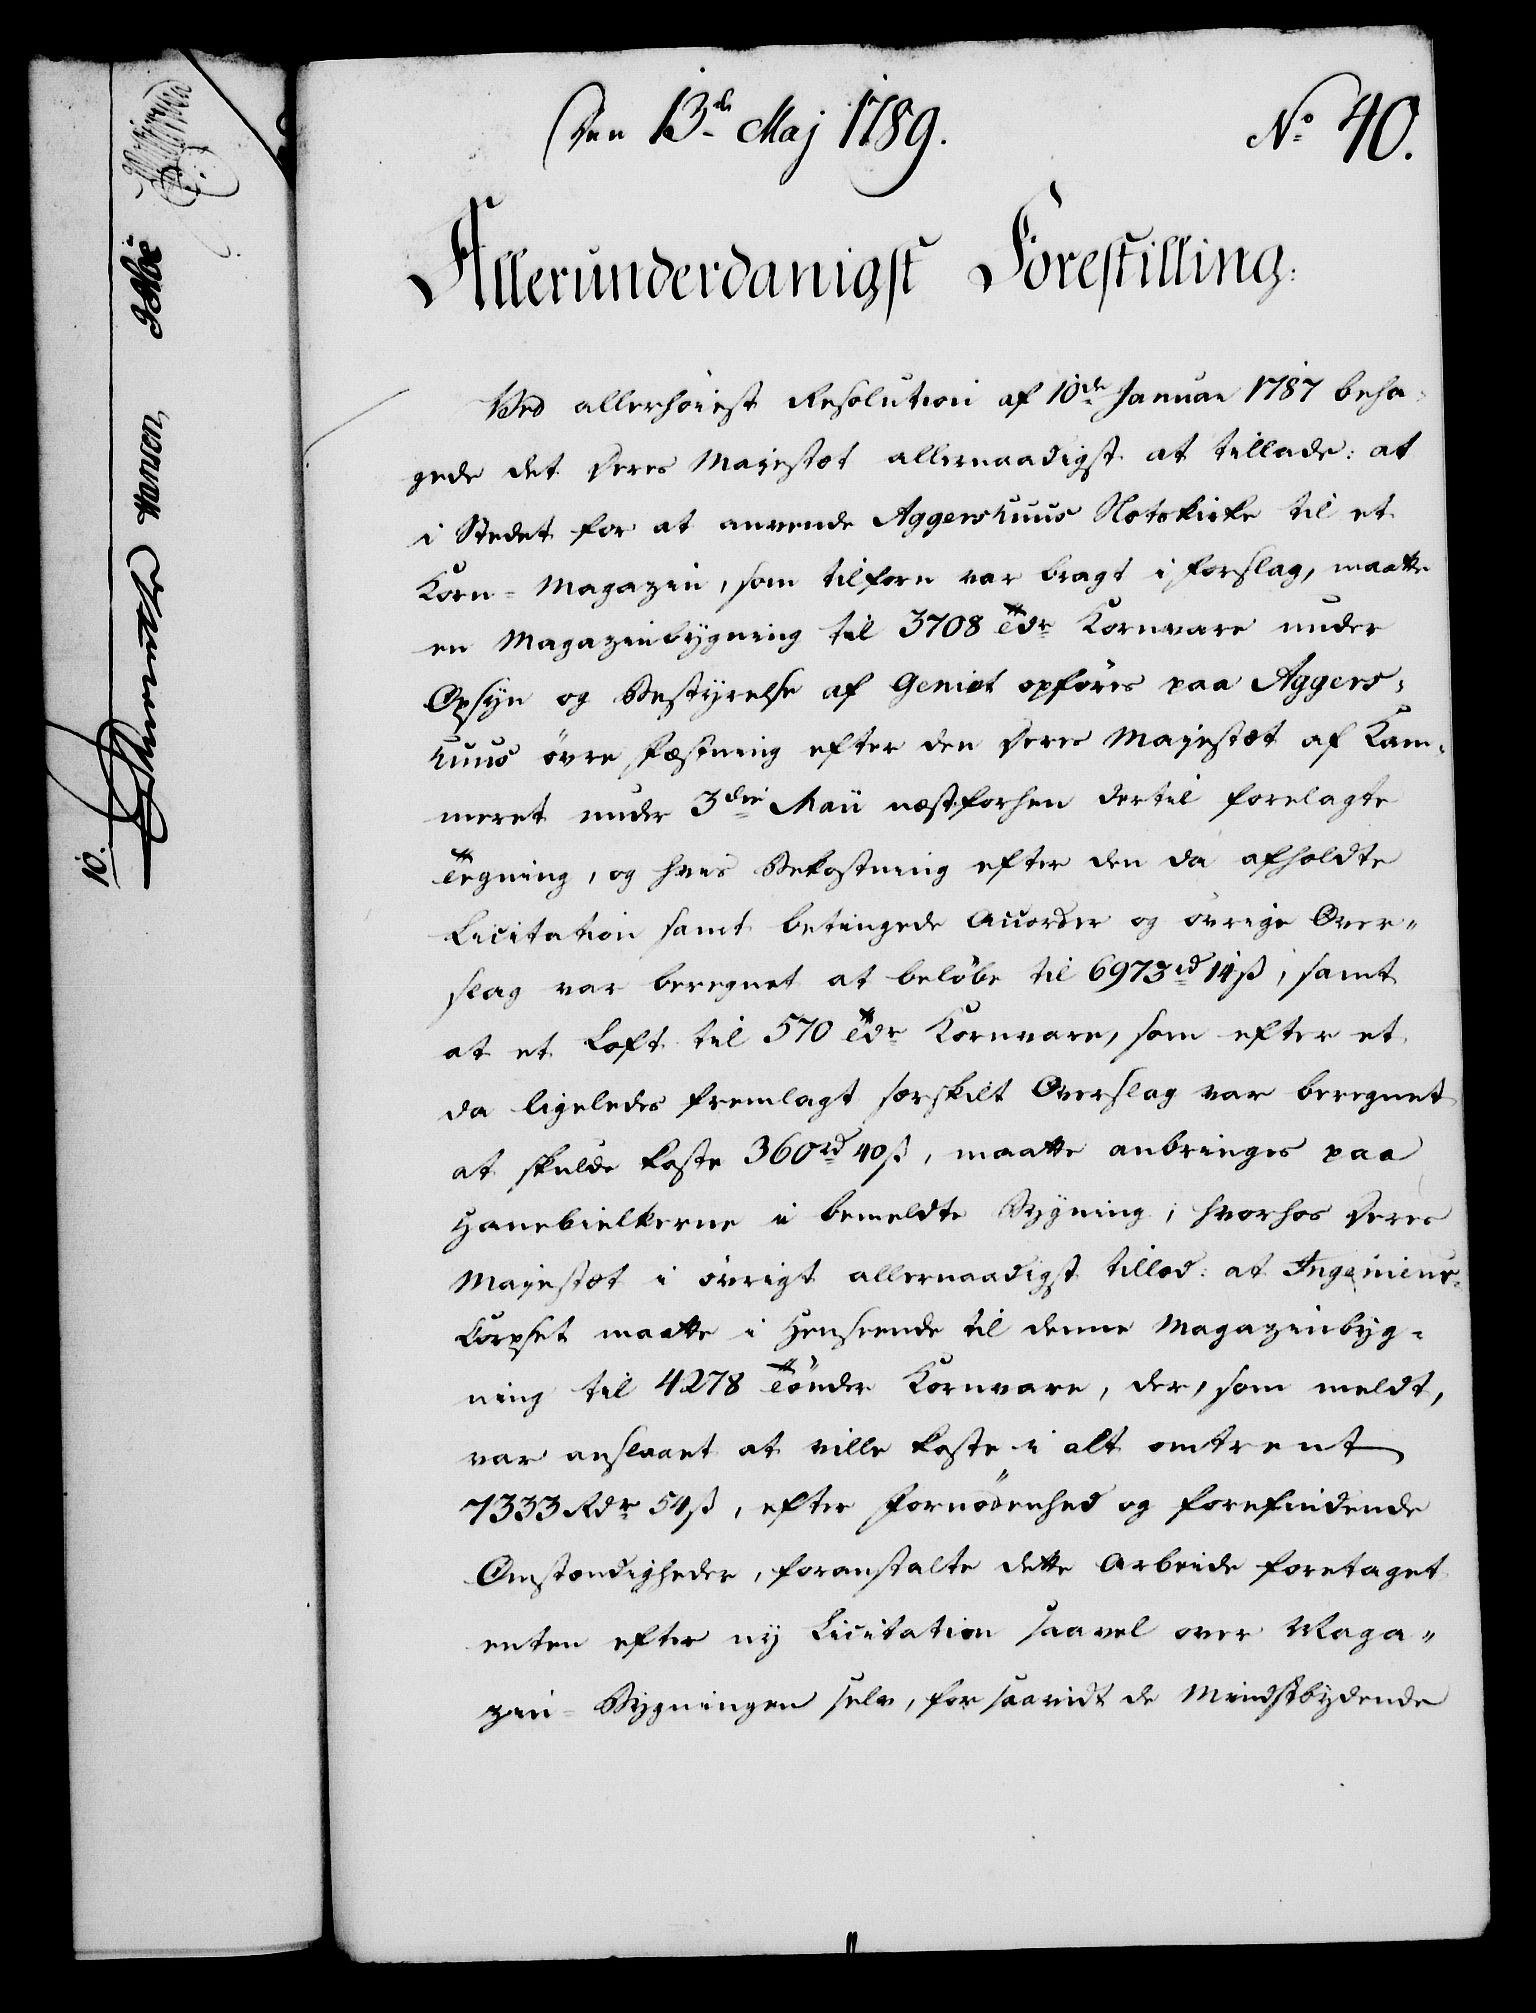 Den 13de Maj 1789.
No 40.
Allerunderdanigst Forestilling:
Ved allerhöiest Resolution af 10de Januar 1787 beha-
gede det Deres Majestæt allernaadigst at tillade: at
i Stedet for at anvende Aggershuus Slotskirke til et
Korn-Magazin, som tilforn var bragt i Forslag, maatte
en Magazinbygning til 3708 Tdr Kornvare under
Opsyn og Bestyrelse af Geniet opföres paa Aggers-
huus övre Fæstning efter den Deres Majestæt af Kam-
meret under 3die Maii næstforhen dertil forelagte
Tegning, og hvis Bekostning efter den da afholdte
Licitation samt betingede Accorder og övrige Over-
slag var beregnet at belöbe til 6973 rd 14 ß, samt
at et Loft til 570 Tdr Kornvare, som efter et
da ligeledes fremlagt særskilt Overslag var beregnet
at skulde koste 360 rd 40 ß, maatte anbringes paa
Hanebielkerne i bemeldte Bygning; hvorhos Deres
Majestæt i övrigt allernaadigst tillod: at Ingenieur-
Corpset maatte i Henseende til denne Magazinbyg-
ning til 4278 Tönder Kornvare, der, som meldt,
var anslaaet at ville koste i alt omtrent
7333 Rdr 54 ß, efter Fornödenhed og forefindende
Omstændigheder, foranstalte dette Arbeide foretaget
enten efter ny Licitation saavel over Maga-
zin-Bygningen selv, for saavidt de Mindstbydende
10.